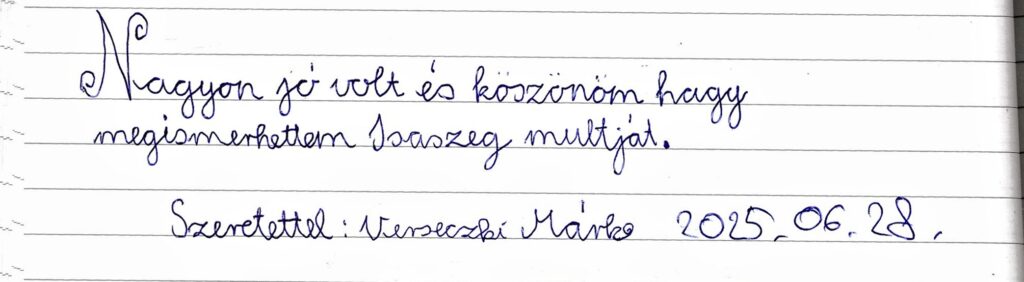 Nagyon jó volt és köszönöm hagy
megismerhettem Isaszeg multját.
Szeretettel: Verseczki Márko 2025.06.28.